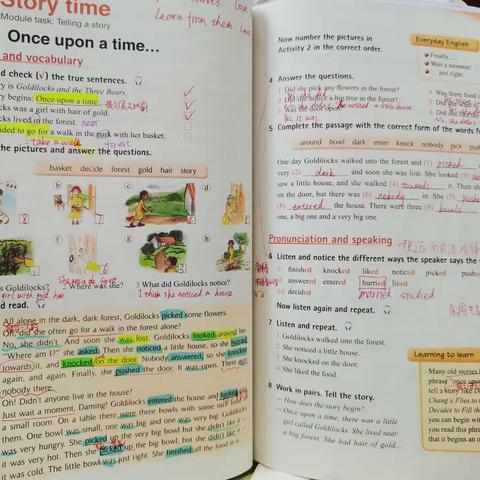 Story time
Module task: Telling a story
Learn from them.
Once upon a time…
and vocabulary
d check (√) the true sentences.
y is Goldilocks and the Three Bears.
y begins: Once upon a time...
cks was a girl with hair of gold.
cks lived in the forest. near
ded to go for a walk in the park with her basket.
take a walk forest
the pictures and answer the questions.
basket decide forest gold hair story
b c d
f g h
s Goldilocks? 2 Where was she? 3 What did Goldilocks notice?
girl with gold hair
She was in the forest
I think she noticed a house
d read.
All alone in the dark, dark forest, Goldilocks picked some flowers.
Oh, did she often go for a walk in the forest alone?
No, she didn't. And soon she was lost. Goldilocks looked around her.
"Where am I?" she asked. Then she noticed a little house, so she hurried
towards it, and knocked on the door. Nobody answered, so she knocked
again, and again. Finally, she pushed the door. It was open. There was
nobody there.
Oh! Didn't anyone live in the house?
Just wait a moment, Daming! Goldilocks entered the house and looked
a small room. On a table there were three bowls with some nice food
them. One bowl was small, one was big and one was very big. Goldilocks
was very hungry. She picked up the very big bowl but she didn't like it –
it was very hot. Then she picked up the big bowl, but she didn't like it –
it was cold. The little bowl was just right. She finished all the food in it.
Now number the pictures in
Activity 2 in the correct order.
Everyday English
Finally, …
Wait a moment!
… just right.
4 Answer the questions.
1 Did she pick any flowers in the forest?
2 Did she notice a big tree in the forest?
she noticed a little house
3 Was the door open?
Yes, it was
4 Was there food i
5 Did she
6 Did she
5 Complete the passage with the correct form of the words f
around bowl dark enter knock nobody pick push
One day Goldilocks walked into the forest and (1) picked
very (2) dark and soon she was lost. She looked (3)
saw a little house, and she walked (4) towards it. Then she
on the door, but there was (6) nobody in. She (7) pushed
(8) entered the house. There were three (9) bowls
one, a big one and a very big one.
Pronunciation and speaking
6 Listen and notice the different ways the speaker says the
finished knocked liked noticed picked pushed
answered entered hurried lived
decided
hurried studied
Now listen again and repeat.
7 Listen and repeat.
1 Goldilocks walked into the forest.
2 She noticed a little house.
3 She knocked on the door.
4 She liked the food.
8 Work in pairs. Tell the story.
— How does the story begin?
— Once upon a time, there was a little
girl called Goldilocks. She lived near
a big forest. She had hair of gold…
Learning to learn
Many old stories
phrase "once upon
tell a story like D
Chang'e Flies to t
Decides to Fill the
you can begin with
you read this phra
that it begins an o